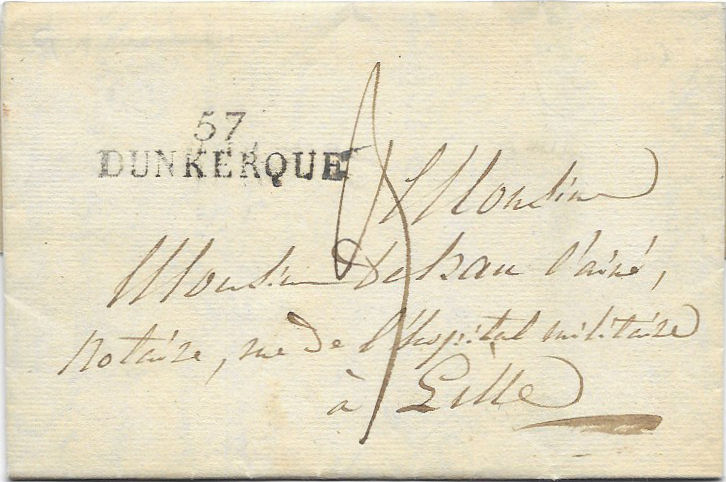 57
DUNKERQUE
Monsieur
Monsieur l'ainé,
Notaire, rue de l'hopital militaire
à Lille